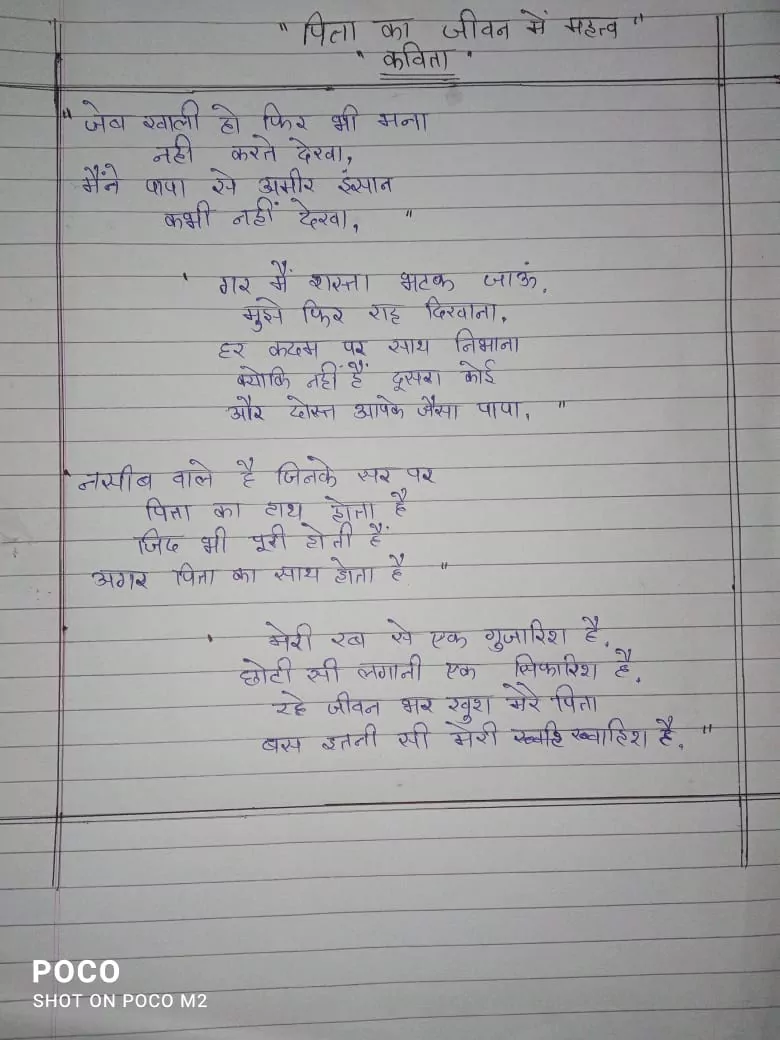 " पिता का जीवन में महत्व "
" कविता "
" जेब खाली हो फिर भी मना
नही करते देखा,
मैंने पापा से अमीर इंसान
कभी नहीं देखा, "
' गर मैं रास्ता भटक जाऊं,
मुझे फिर राह दिखाना,
हर कदम पर साथ निभाना
क्योकि नहीं हैं दूसरा कोई
और दोस्त आपके जैसा पापा, "
' नसीब वाले है जिनके सर पर
पिता का हाथ होता है
जिद भी पूरी होती हैं
अगर पिता का साथ होता है "
' मेरी रब से एक गुजारिश है,
छोटी सी लगानी एक सिफारिश है,
रहे जीवन भर खुश मेरे पिता
बस इतनी सी मेरी ख्वाहिश है, "
POCO
SHOT ON POCO M2